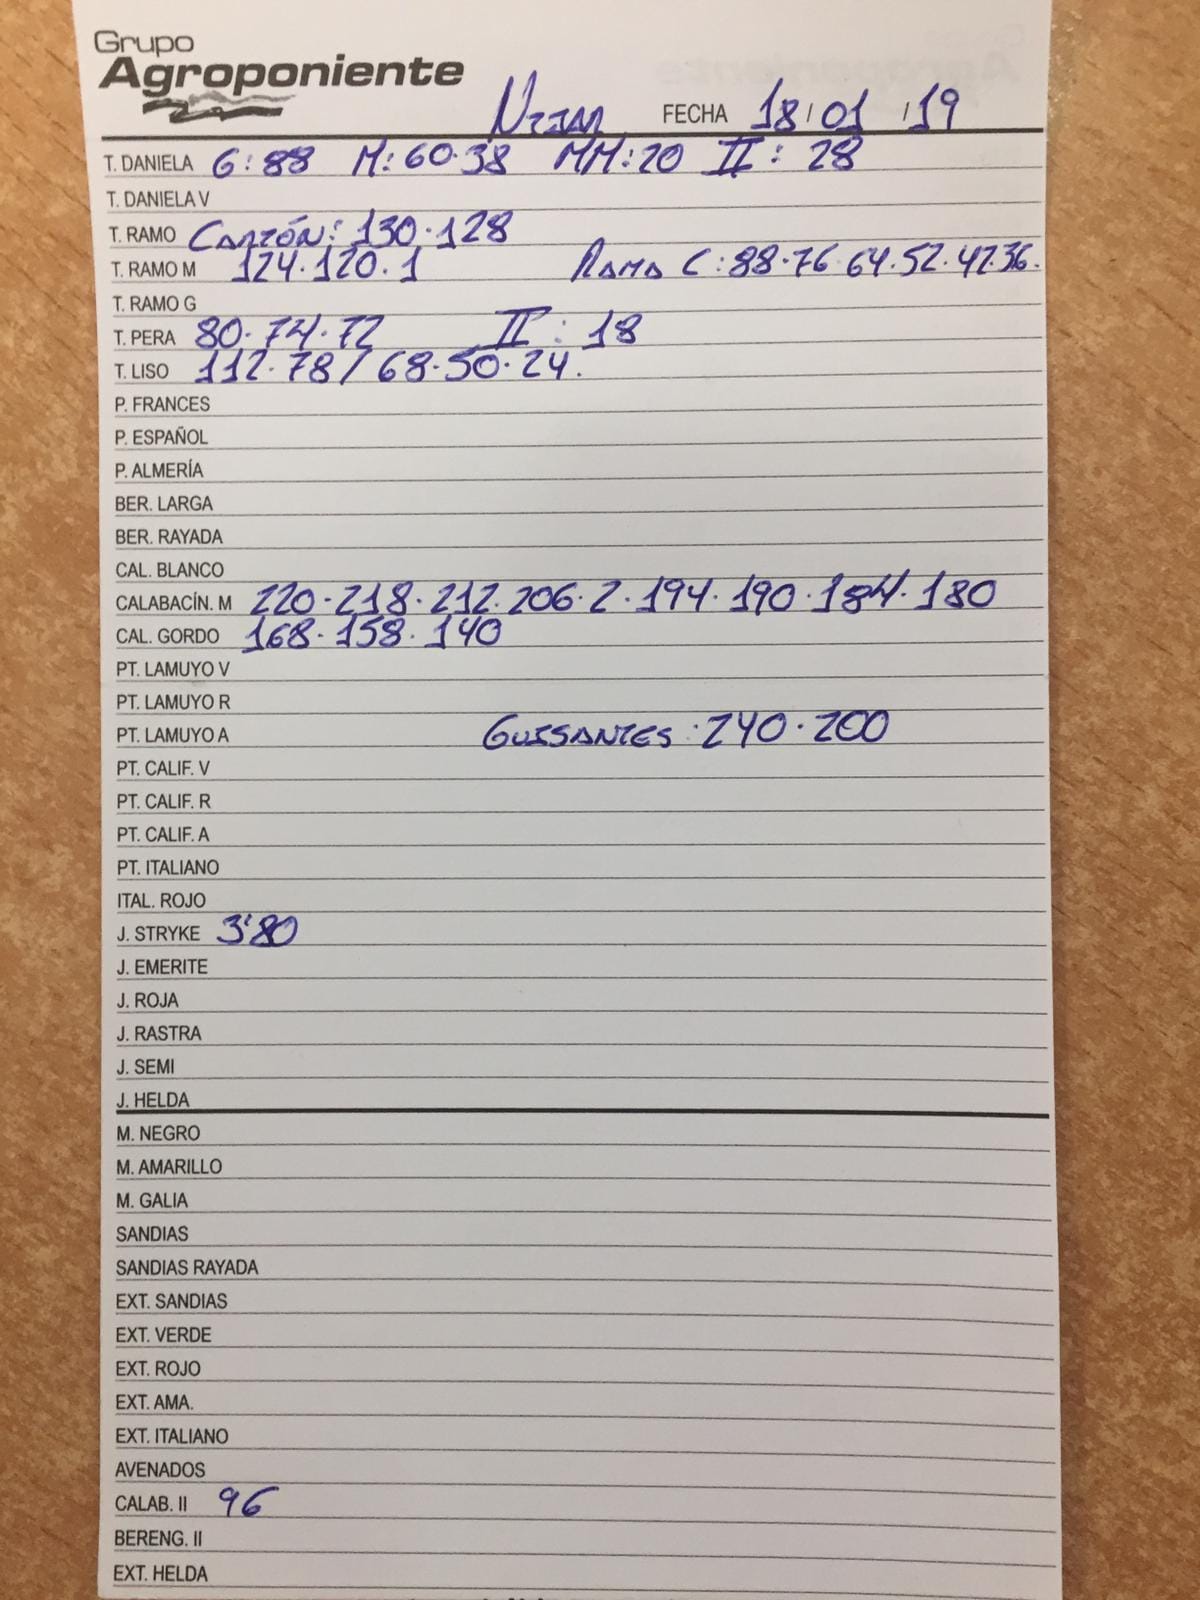 Grupo
Agroponiente
Nijar FECHA 18/01/19
T. DANIELA G:88 M:60.38 MM:20 II:28
T. DANELA V
T. RAMO Cartón: 130.128
T. RAMO M 124.120.1 Rama C:88.76 64.52.42.36.
T. RAMO G
T. PERA 80.74.72 II:18
T. LISO 112.78/68.50.24.
P. FRANCES
P. ESPAÑOL
P. ALMERÍA
BER. LARGA
BER. RAYADA
CAL. BLANCO
CALABACÍN. M 220.218.212.206.2.194.190.184.180
CAL. GORDO 168.158.140
PT. LAMUYO V
PT. LAMUYO R
PT. LAMUYO A GUISANTES:240.200
PT. CALIF. V
PT. CALIF. R
PT. CALIF. A
PT. ITALIANO
ITAL. ROJO
J. STRYKE 3'80
J. EMERITE
J. ROJA
J. RASTRA
J. SEMI
J. HELDA
M. NEGRO
M. AMARILLO
M. GALIA
SANDIAS
SANDIAS RAYADA
EXT. SANDIAS
EXT. VERDE
EXT. ROJO
EXT. AMA.
EXT. ITALIANO
AVENADOS
CALAB. II 96
BERENG. II
EXT. HELDA